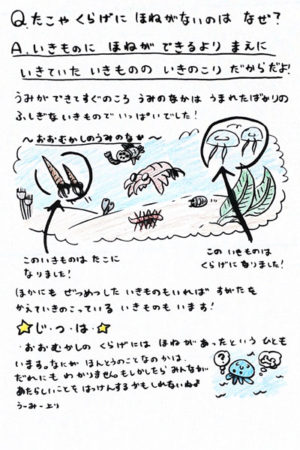 Q.たこや くらげに ほねがないのは なぜ?
A.いきものに ほねが できるより まえに
いきていた いきものの いきのこり だからだよ!
うみが できて すぐのころ うみのなかは うまれたばかりの
ふしぎな いきもので いっぱいでした!
～おおむかしの うみのなか～
このいきものは たこに
なりました!
この いきものは
くらげに なりました!
ほかにも ぜつめつした いきものもいれば すがたを
かえて いきのこっている いきものも います!
☆じ・つ・は・☆
・おおむかしの くらげには ほねが あったという ひとも
います。なにが ほんとうのことなのかは、
だれにも わかりません。もしかしたら みんなが、
あたらしいことを はっけんするかもしれないね♪
うーみーより
?
?